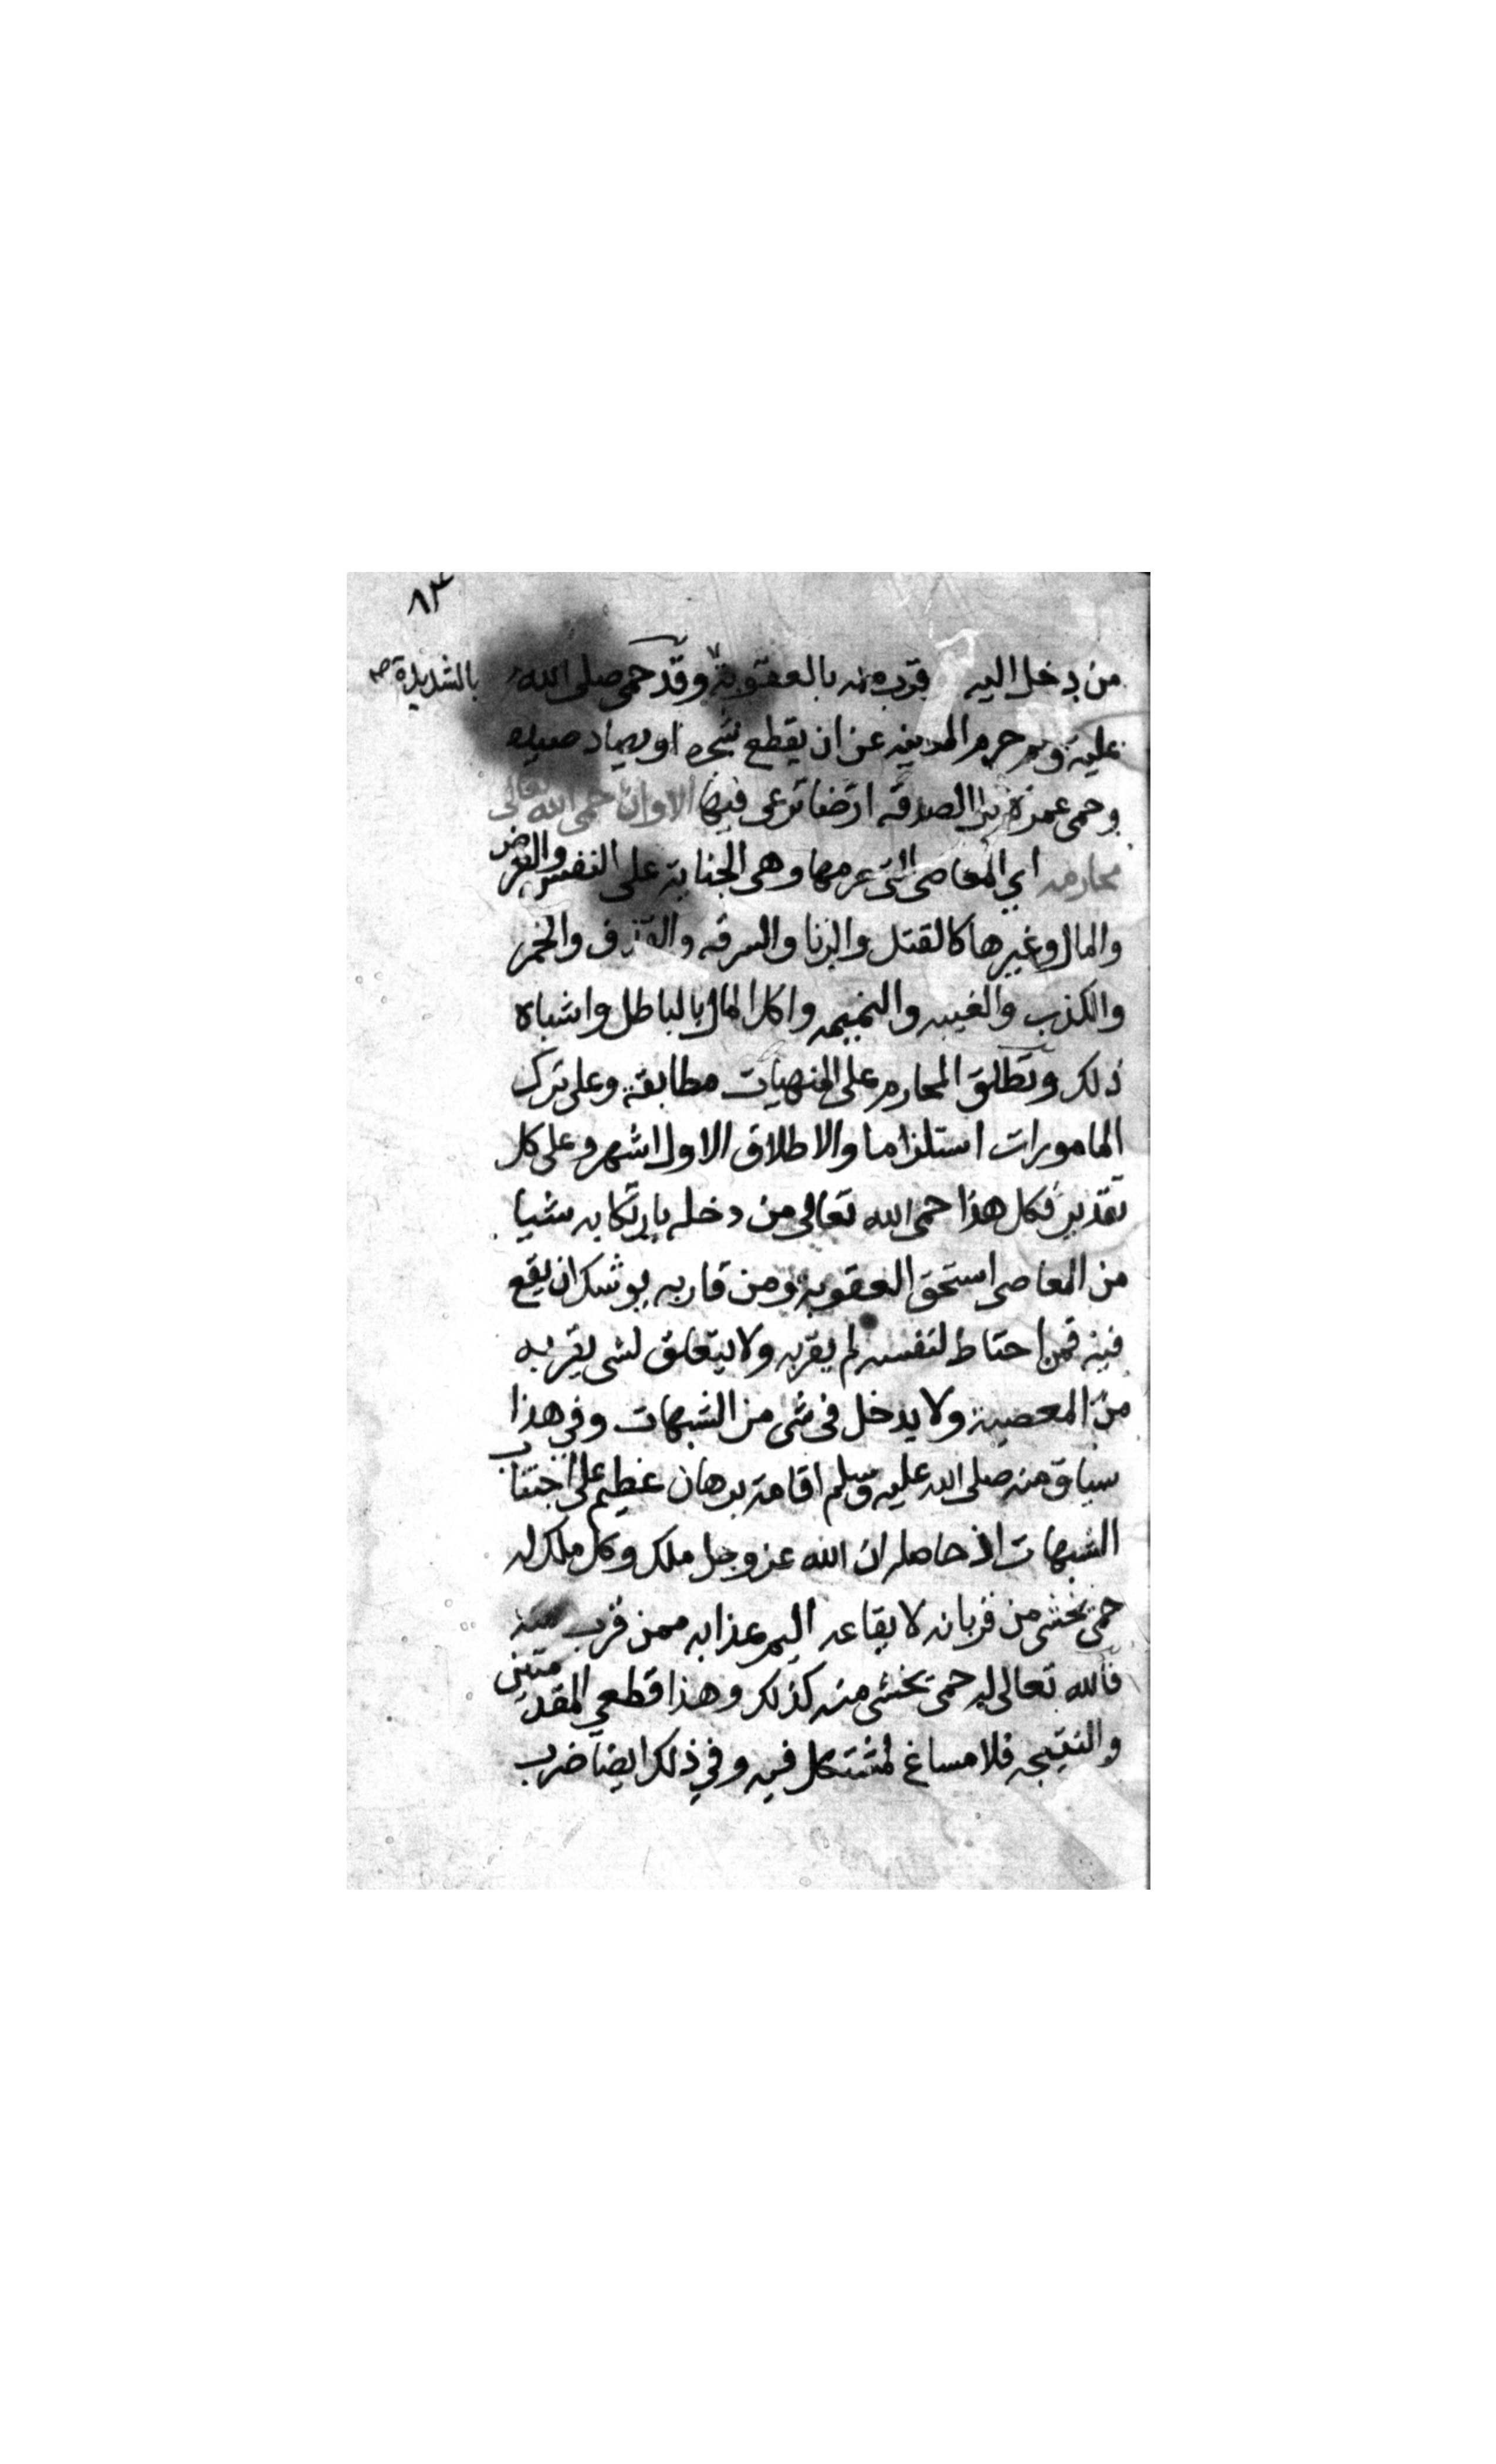 ٨٣
من دخل اليه قرب منه بالعقوبة وقد حمى صلى الله بالشديدة صح
عليه وسلم حرم المدينه عن ان يقطع شجره او يصاد صيده
وحمى عمر لابل الصدقه ارضا ترعى فيها الا وان حمى الله تعالى
محارمه اي المعاصي التي حرمها وهي الجناية على النفس والعرض
والمال وغيرها كالقتل والزنا والسرقه والقذف والخمر
والكذب والغيبه والنميمه واكل المال بالباطل واشباه
ذلك وتطلق المحارم على المنهيات مطابقة وعلى ترك
المامورات استلزاما والاطلاق الاول اشهر وعلى كل
تقدير فكل هذا حمى الله تعالى من دخله بارتكابه شيا
من المعاصي استحق العقوبة ومن قاربه يوشك ان يقع
فيه فمن احتاط لنفسه لم يقربه ولا يتعلق لشي يقربه
من المعصية ولا يدخل في شي من الشبهات وفي هذا
سباق منه صلى الله عليه وسلم اقامة برهان عظيم على اجتناب
الشبهات اذ حاصله ان الله عز وجل ملك وكل ملك له
حمى يخشى من قربانه لايقاعه اليم عذابه ممن قرب منه
فالله تعالى له حمى يخشى منه كذلك وهذا قطعي المقدمتين
والنتيجه فلا مساغ لمشتكل فيه وفي ذلك ايضا ضرب